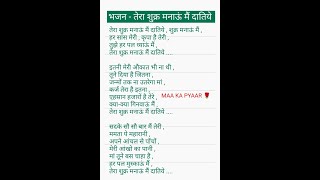 भजन - तेरा शुक्र मनाऊं मैं दातिये
तेरा शुक्र मनाऊं मैं , शुक्र मनाऊं मैं ,
हर सांस मेरी , कृपा है तेरी ,
तुझे हर पल ध्याऊं मैं ,
तेरा शुक्र मनाऊं मैं दातिये ....
इतनी मेरी औकात भी ना थी ,
तूने दिया है जितना ,
जन्मों तक ना उतरेगा मां ,
कर्ज तेरा है इतना ,
एहसान हजारों है तेरे , MAA KA PYAAR
क्या-क्या गिनवाऊं मैं ,
तेरा शुक्र मनाऊं मैं दातिये ....
सदके सौ सौ बार मैं तेरी ,
ममता पे महारानी ,
अपने आंचल से पोंछों ,
मेरी आंखों का पानी ,
मां तूने बस चाहा है ,
हर पल मुस्काऊं मैं ,
तेरा शुक्र मनाऊं मैं दातिये ,